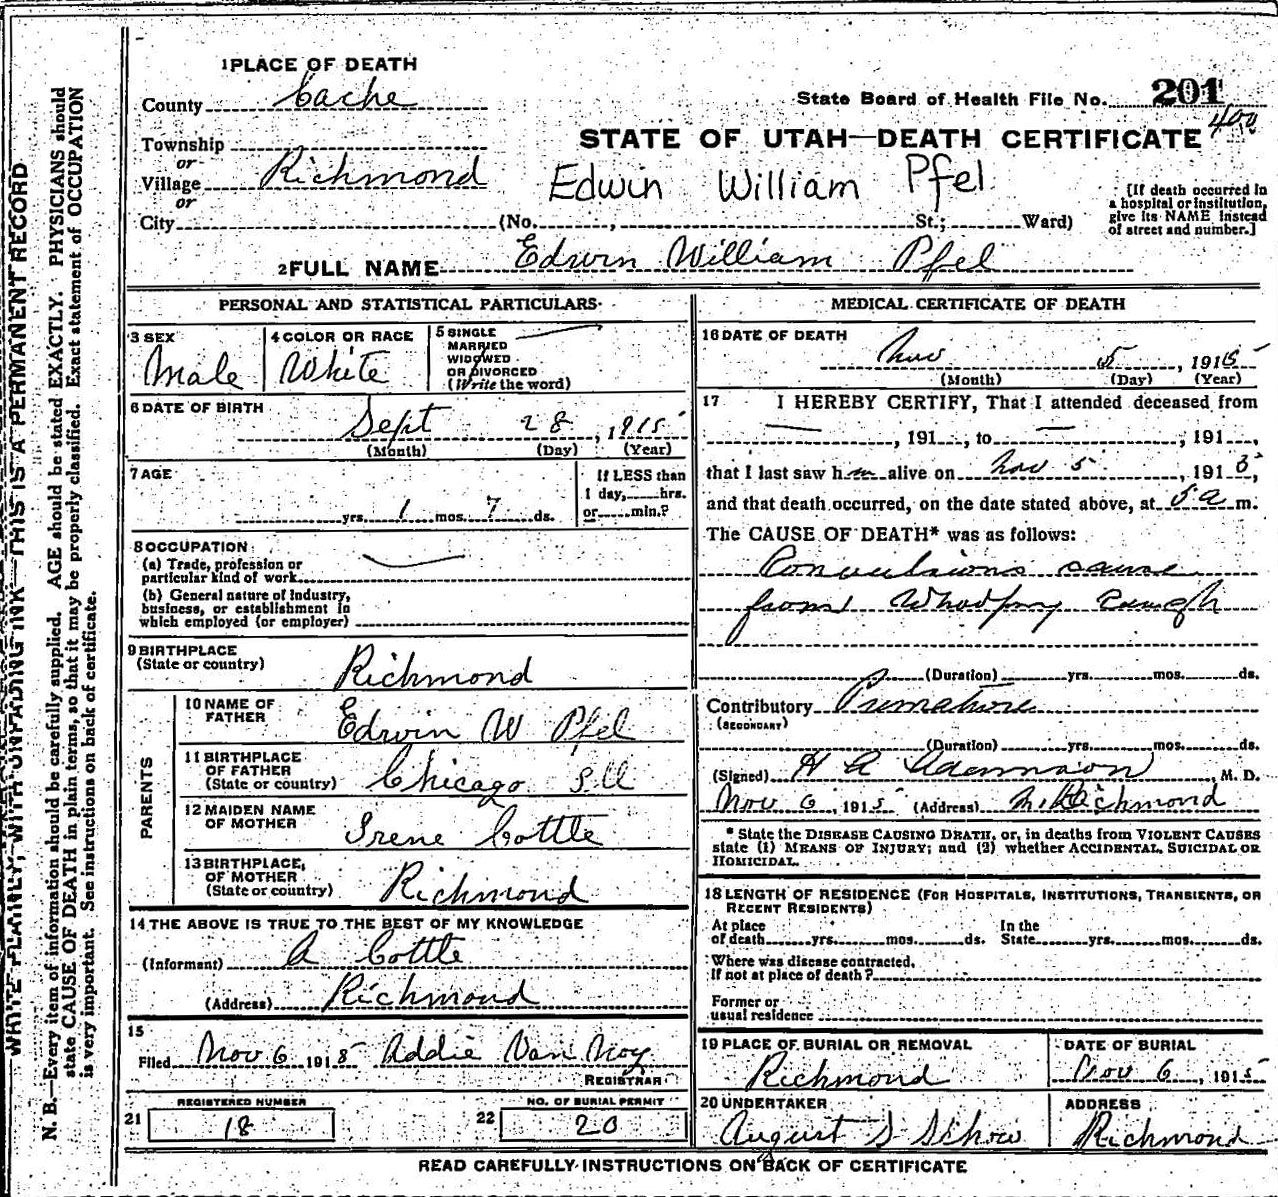 1 PLACE OF DEATH
County Cache
State Board of Health File No. 201
400
Township
or
Village Richmond
or
City (No. , St.; Ward)
STATE OF UTAH—DEATH CERTIFICATE
Edwin William Pfel
[If death occurred in
a hospital or institution,
give its NAME instead
of street and number.]
2 FULL NAME Edwin William Pfel
PERSONAL AND STATISTICAL PARTICULARS
3 SEX
Male
4 COLOR OR RACE
White
5 SINGLE
MARRIED
WIDOWED
OR DIVORCED
(Write the word)
6 DATE OF BIRTH
Sept 28, 1915
(Month) (Day) (Year)
7 AGE
yrs. 1 mos. 7 ds.
If LESS than
1 day, hrs.
or min.?
8 OCCUPATION
(a) Trade, profession or
particular kind of work
(b) General nature of industry,
business, or establishment in
which employed (or employer)
9 BIRTHPLACE
(State or country)
Richmond
PARENTS
10 NAME OF
FATHER
Edwin W Pfel
11 BIRTHPLACE
OF FATHER
(State or country)
Chicago Ill
12 MAIDEN NAME
OF MOTHER
Irene Cottle
13 BIRTHPLACE
OF MOTHER
(State or country)
Richmond
14 THE ABOVE IS TRUE TO THE BEST OF MY KNOWLEDGE
(Informant) A Cottle
(Address) Richmond
15
Filed Nov 6 1915 Addie Van Noy
REGISTRAR
REGISTERED NUMBER
21 18
NO. OF BURIAL PERMIT
22 20
MEDICAL CERTIFICATE OF DEATH
16 DATE OF DEATH
Nov 5, 1915
(Month) (Day) (Year)
17 I HEREBY CERTIFY, That I attended deceased from
, 191 , to , 191 ,
that I last saw h m alive on Nov 5, 1915,
and that death occurred, on the date stated above, at 5 a m.
The CAUSE OF DEATH* was as follows:
Convulsions cause
from Whooping Cough
(Duration) yrs. mos. ds.
Contributory Premature
(SECONDARY)
(Duration) yrs. mos. ds.
(Signed) H A Adamson, M. D.
Nov 6, 1915 (Address) Richmond
* State the DISEASE CAUSING DEATH, or, in deaths from VIOLENT CAUSES
state (1) MEANS OF INJURY; and (2) whether ACCIDENTAL, SUICIDAL OR
HOMICIDAL.
18 LENGTH OF RESIDENCE (FOR HOSPITALS, INSTITUTIONS, TRANSIENTS, OR
RECENT RESIDENTS)
At place
of death yrs. mos. ds.
In the
State yrs. mos. ds.
Where was disease contracted,
If not at place of death?
Former or
usual residence
19 PLACE OF BURIAL OR REMOVAL
Richmond
DATE OF BURIAL
Nov 6, 1915
20 UNDERTAKER
August S Schow
ADDRESS
Richmond
READ CAREFULLY INSTRUCTIONS ON BACK OF CERTIFICATE
WRITE PLAINLY, WITH UNFADING INK—THIS IS A PERMANENT RECORD
N. B.—Every item of information should be carefully supplied. AGE should be stated EXACTLY. PHYSICIANS should
state CAUSE OF DEATH in plain terms, so that it may be properly classified. Exact statement of OCCUPATION
is very important. See instructions on back of certificate.